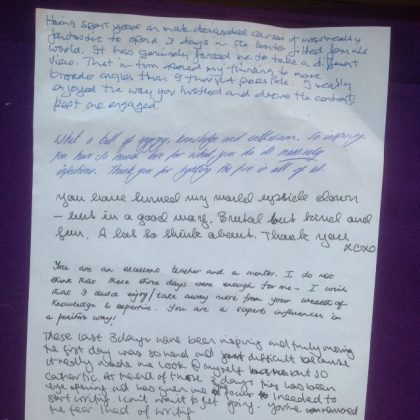 Having spent years on male dominated courses it was really
fantastic to spend 3 days in the world, female
world. It has genuinely forced me to take a different
view. That in turn opened my thinking to more
broader angles than I thought possible. I really
enjoyed the way you hustled and drove the content
kept me engaged.
What a ball of energy, knowledge and enthusiasm. So inspiring.
You have so much love for what you do its massively
infectious. Thank you for igniting the fire in all of us.
You have turned my world upside down
- but in a good way. Brutal but kind and
fun. A lot to think about. Thank you
xoxo
You are an excellent teacher and a mentor. I do not
think that these three days were enough for me - I wish
that I could enjoy / take away more from your wealth of
knowledge & expertise. You are a superb influencer in
a positive way!
These last 3 days have been inspiring and truly moving
the first day was so hard and difficult because
it really made me look @ myself but so
cathartic. At the end of those 3 days this has been
eye opening and has given me focus I needed to
start writing. I can't wait to get going. You've removed
the fear of writing